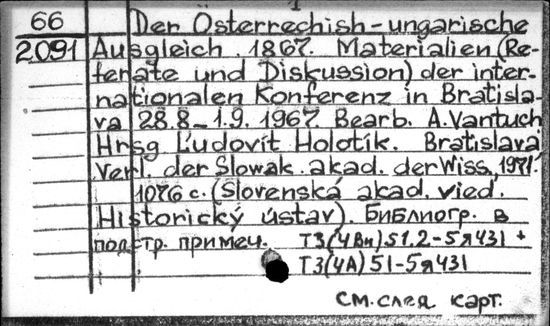 66 Der Österrechish-ungarische
2091 Ausgleich. 1867. Materialien (Re-
ferate und Diskussion) der inter-
nationalen Konferenz in Bratisla-
va 28.8-1.9. 1967 Bearb. A. Vantuch
Hrsg Ľudovít Holotík. Bratislava
Verl. der Slowak. akad. der Wiss, 1971.
1076 с. (Slovenská akad. vied.
Historický ústav). Библиогр. в
подстр. примеч. Т3(4Вн)51.2-5я431 +
Т3(4А)51-5я431
см. след карт.